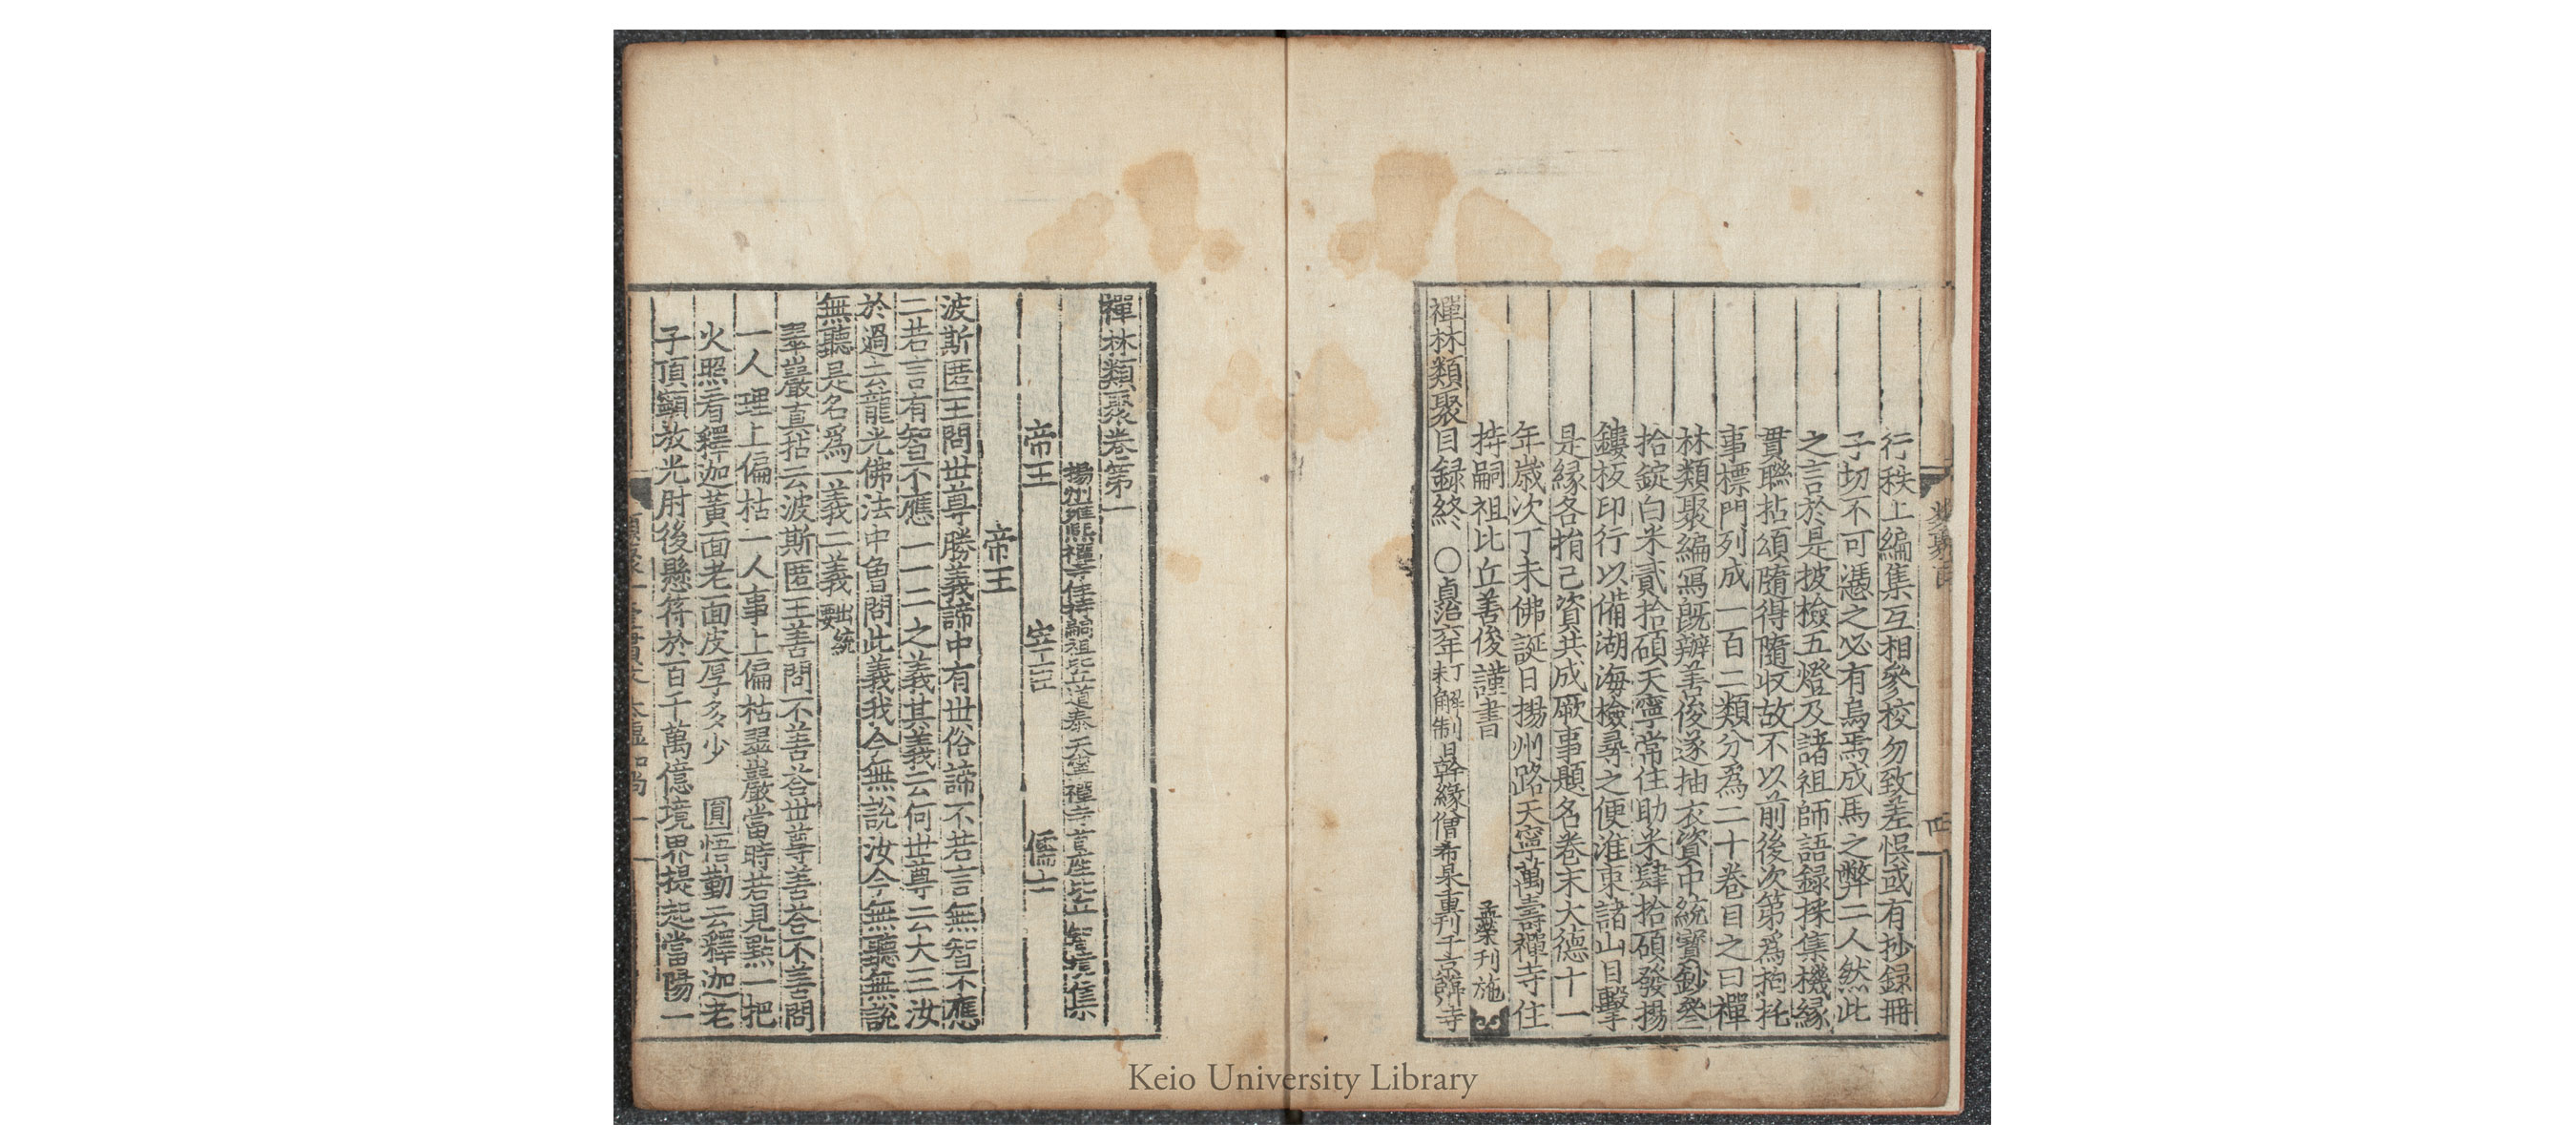 行秩上編集互相參校勿致差悞或有抄録冊
子切不可憑之必有烏焉成馬之弊二人然此
之言於是披檢五燈及諸祖師語録採集機縁
貫聯拈頌隨得隨収故不以前後次第爲拘托
事標門列成一百二類分爲二十卷目之曰禪
林類聚編寫既辦善俊遂抽衣資中統寶鈔叄
拾錠白米貳拾碩天寧常住助米肆拾碩發揚
鏤板印行以備湖海檢尋之便淮東諸山目擊
是縁各捐己資共成厥事題名卷末大德十一
年歳次丁未佛誕日揚州路天寧萬壽禪寺住
持嗣祖比丘善俊謹書
孟榮刊施
禪林類聚目録終 〇貞治六年丁未解制日幹縁僧希杲重刊于京臨川寺
禪林類聚卷第一
揚州雍熙禪寺住持嗣祖比丘道泰 天寧禪寺首座比丘智境集
帝王 宰官 儒士
帝王
波斯匿王問世尊勝義諦中有世俗諦不若言無智不應
二若言有智不應一一二之義其義云何世尊云大王汝
於過去龍光佛法中曽問此義我今無說汝今無聽無說
無聽是名爲一義二義 出統要
翠巖真拈云波斯匿王善問不善答世尊善答不善問
一人理上偏枯一人事上偏枯翠巖當時若見點一把
火照看釋迦黃面老面皮厚多少 圓悟勤云釋迦老
子頂顊放光肘後懸符於百千萬億境界提起當陽一
Keio University Library